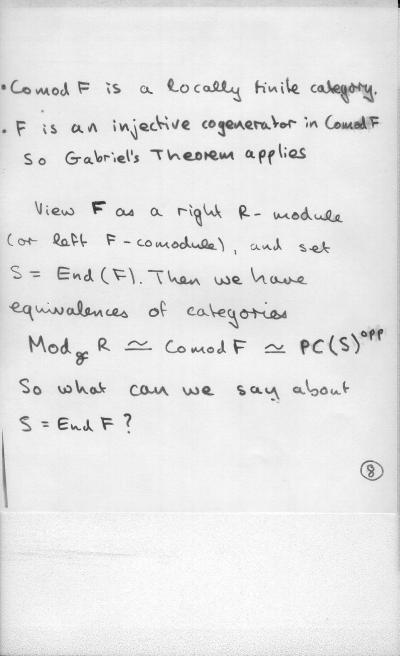 • Comod F is a locally finite category.
• F is an injective cogenerator in Comod F
So Gabriel's Theorem applies
View F as a right R-module
(or left F-comodule), and set
S = End(F). Then we have
equivalences of categories
Mod_gr R ≃ Comod F ≃ PC(S)^opp
So what can we say about
S = End F?
8